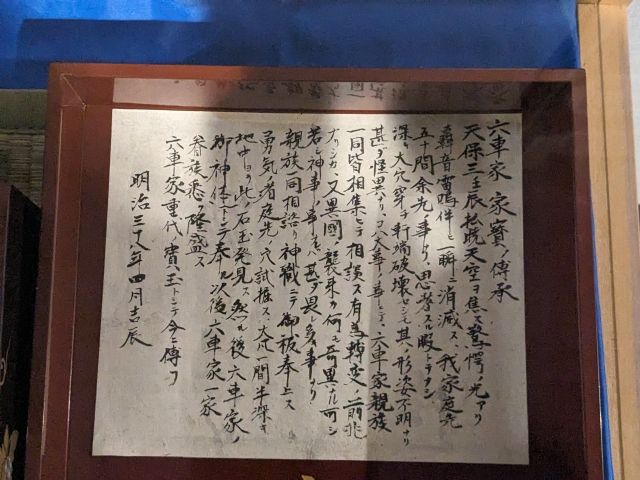 六車家 家寶ノ傳承
天保三壬辰 天空ヲ焦ス驚愕ノ光アリ
轟音雷鳴伴ヒ一瞬ニ消滅ス 我家庭先
五十間余先ノ事ナリ 思考スル暇トテナシ
深ク大穴穿チ軒端破壊セシモ其ノ形姿不明ナリ
甚ダ怪異ナリ コハ大事ノ事トテ 六車家親族
一同皆相集ヒテ相談ス有為轉変ノ前兆
ナリシカ 又異國ノ襲来カ何ニ奇異ナル可シ
若シ神事ノ事ナレバ甚ダ畏レ多キ事ナリ
親族一同相語リ神職ニテ御祓奉上ス
勇気者庭先ノ穴試掘ス 大凡一間半深キ
地中ヨリ此ノ石玉発見ス 然ル後六車家ノ
御神体トシテ奉ル 以後 六車家一家
眷族悉ク隆盛ス
六車家重代ノ寶玉トシテ今ニ傳フ
明治三十八年四月吉辰